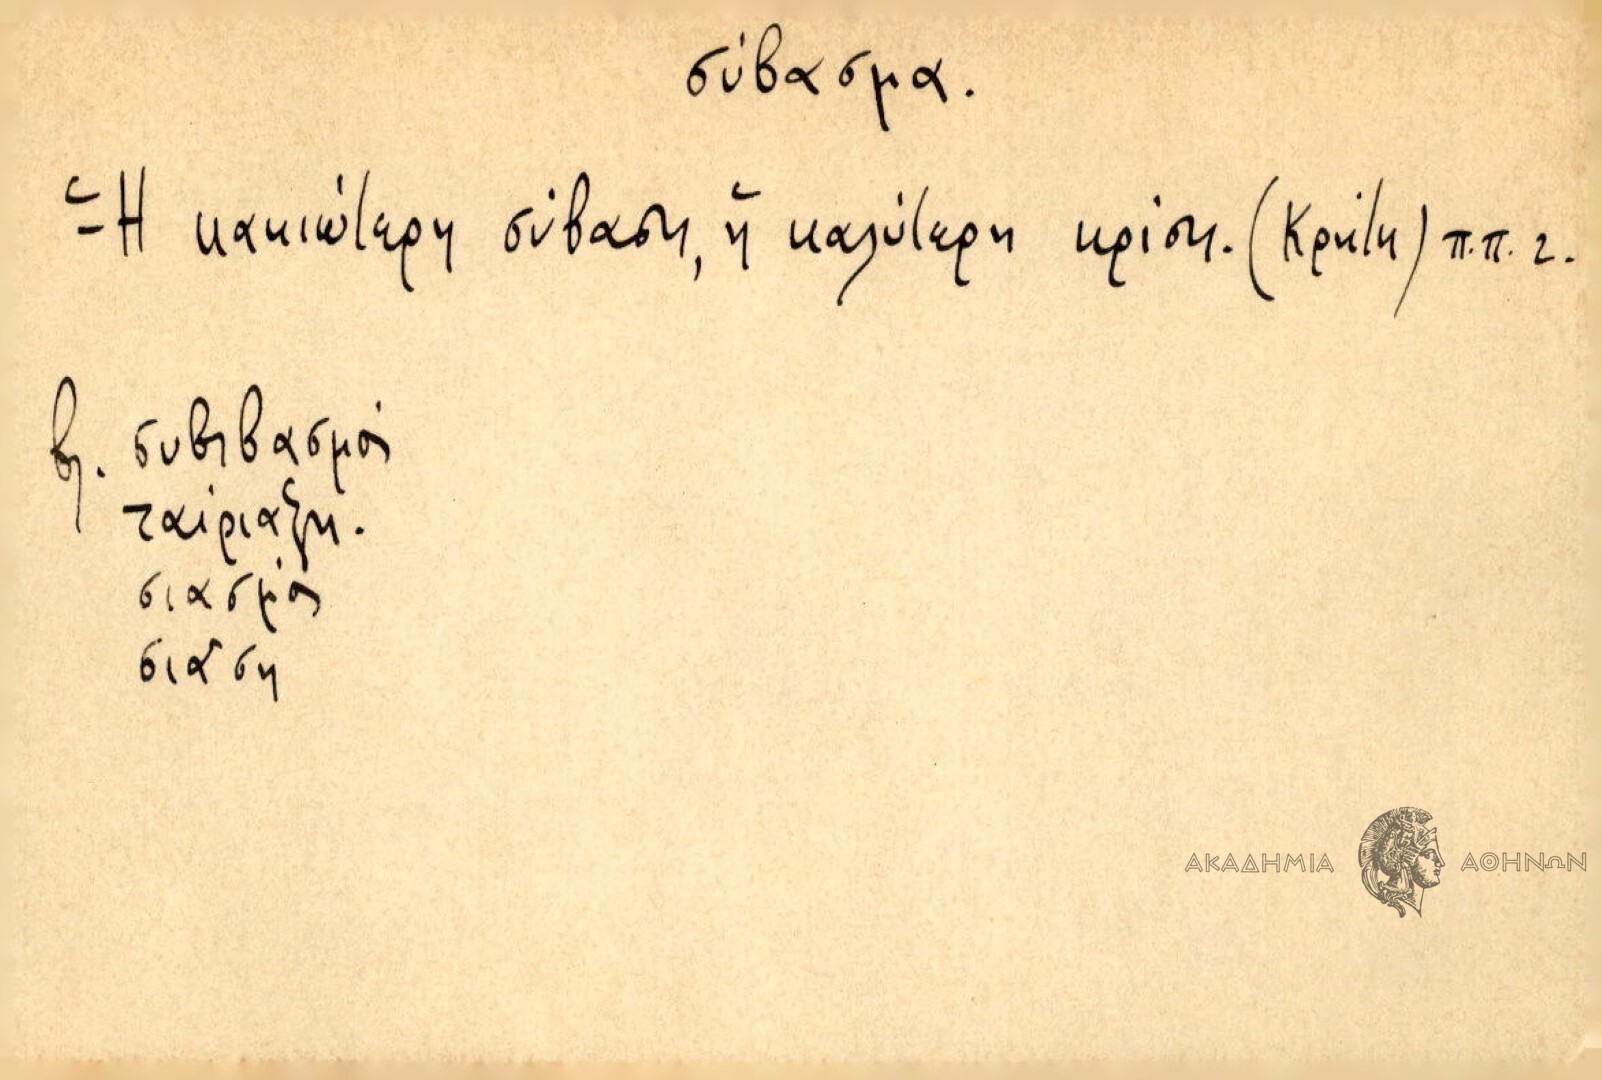 σύβασμα.
- Ἡ κακιώτερη σύβαση, ἡ καλύτερη κρίση. (Κρήτη) π.π. 2.
βλ. συβιβασμός
ταίριαξη.
σιασμός
σιάση
ΑΚΑΔΗΜΙΑ ΑΘΗΝΩΝ